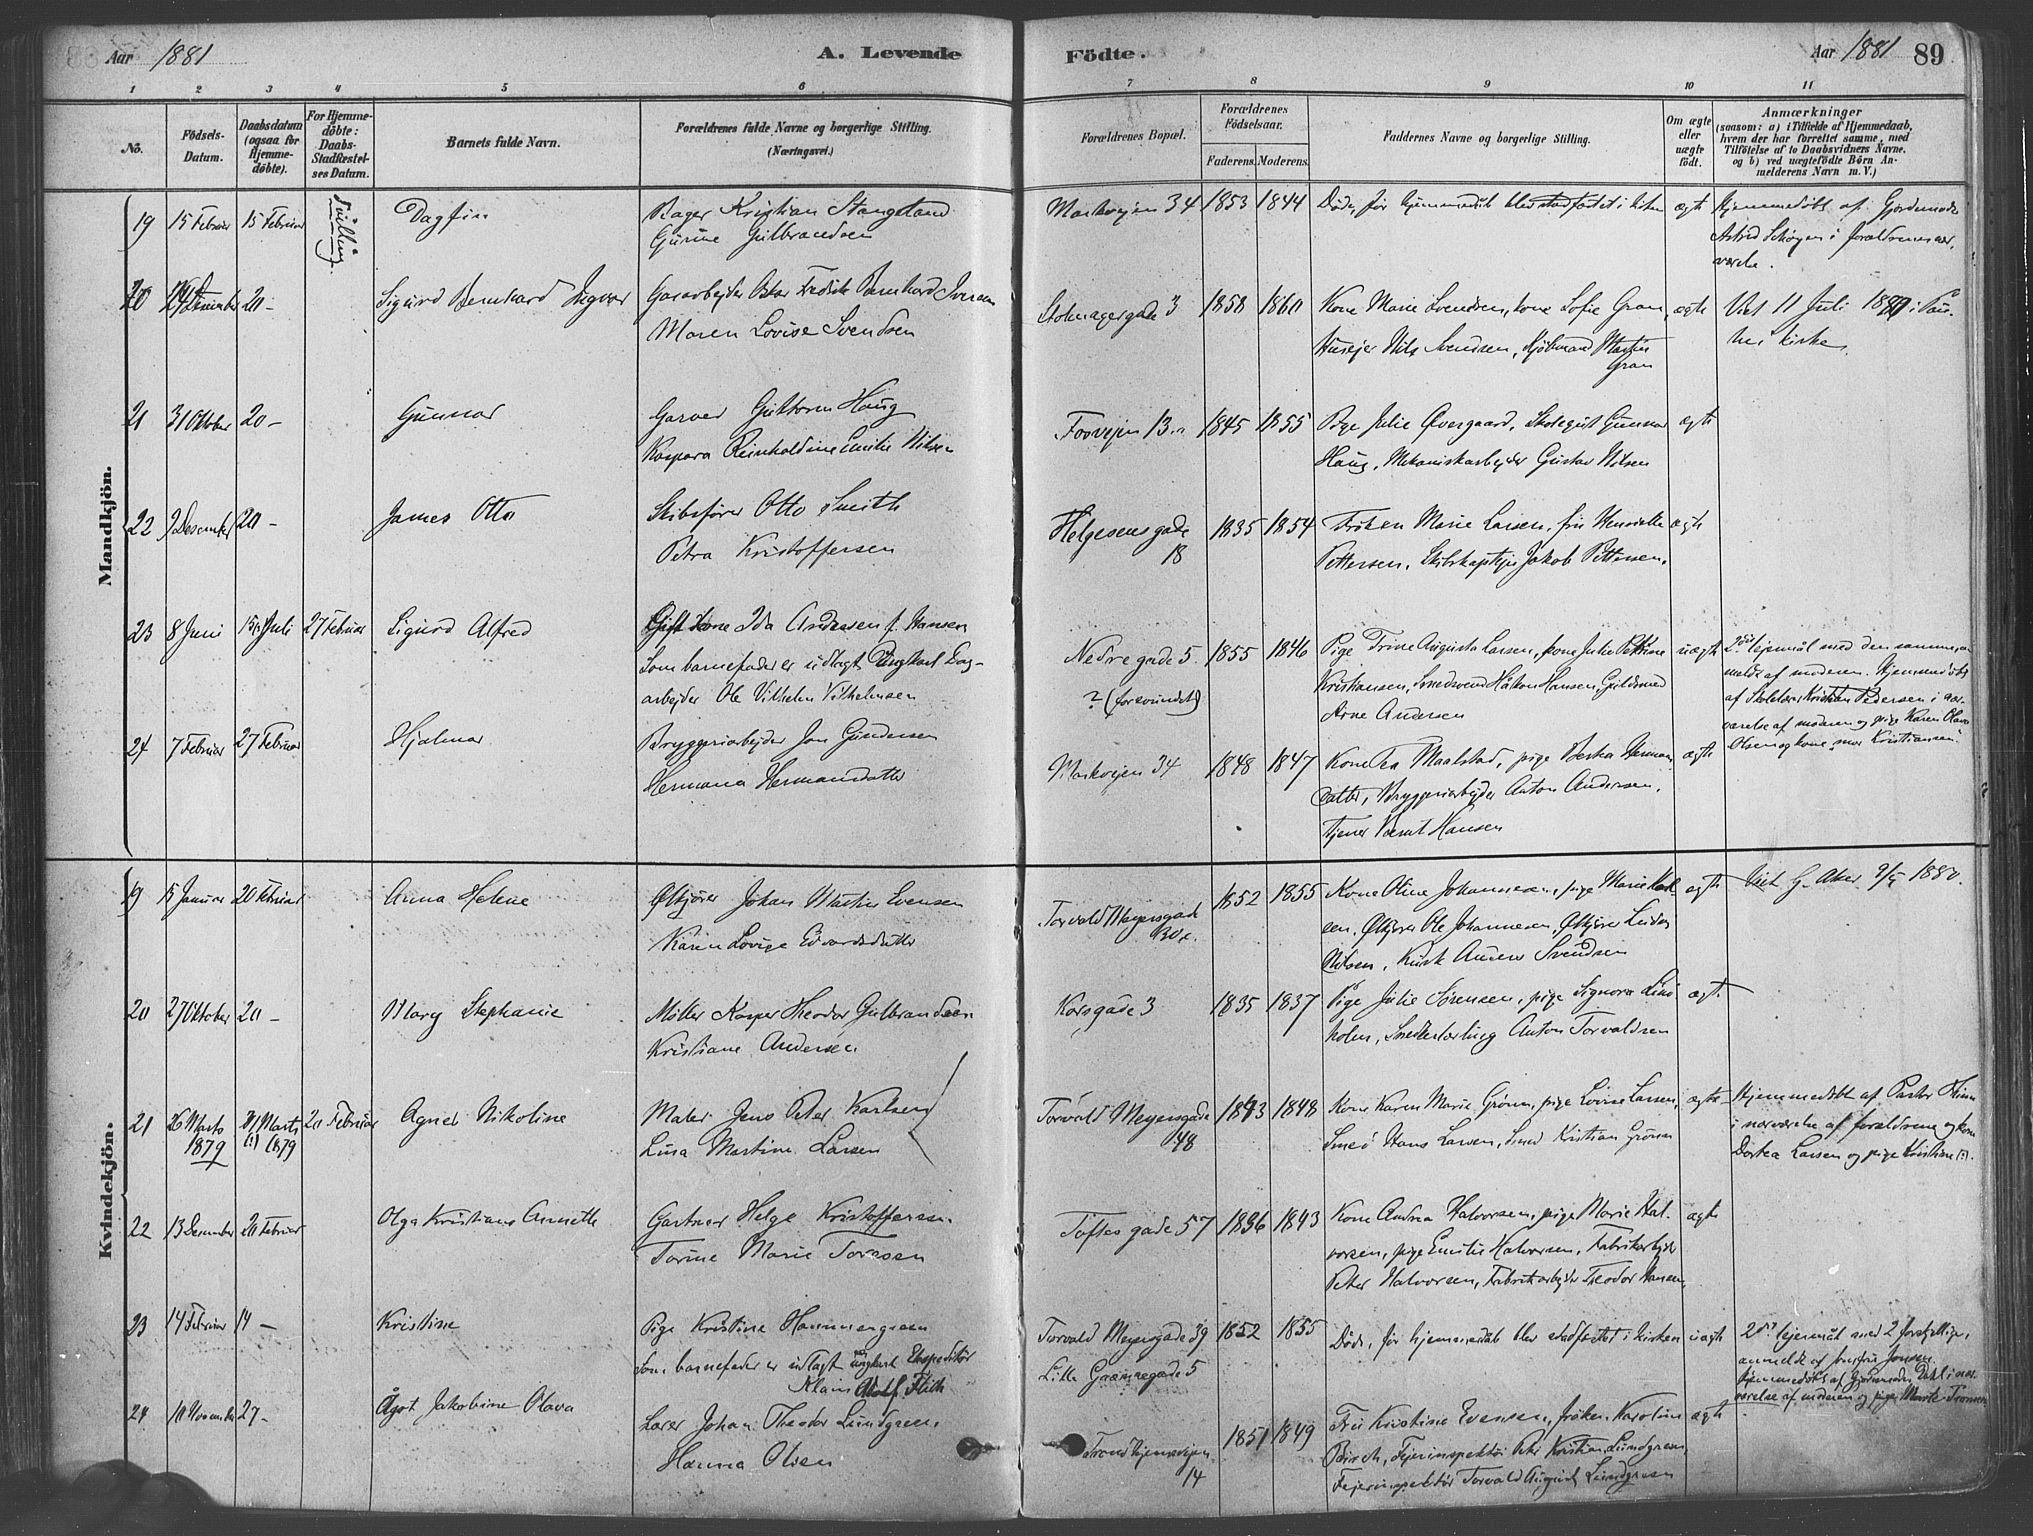 Aar 1881
A. Levende
Födte.
Aar 1881
89
1 2 3 4 5 6 7 8 9 10 11
No.
Födsels-Datum.
Daabsdatum (ogsaa for Hjemme-döbte).
For Hjemme-döbte: Daabs-Stadfæstel-ses Datum.
Barnets fulde Navn.
Forældrenes fulde Navne og borgerlige Stilling.
(Næringsvei.)
Forældrenes Bopæl.
Forældrenes Födselsaar.
Faderens. Moderens.
Faddernes Navne og borgerlige Stilling.
Om ægte eller uægte födt.
Anmærkninger
(saasom: a) i Tilfælde af Hjemmedaab,
hvem der har forrettet samme, med
Tilföielse af to Daabsvidners Navne,
og b) ved uægtefödte Börn An-
melderens Navn m. V.)
Mandkjön.
19 15 Februar 15 Februar Dagfin
Kristian Stangeland
Gurine Gulbrandsen
Markvejen 34 1853 1844 Døde, før hjemmedåb blev stadfæstet i kirken ægte
Hjemmedöbt af Gjordemoder
Astrid i forældrenes nær-
værelse.
20 20 – Sigurd Bernhard Ingvar
Gasarbejder Oskar Fredrik Bernhard Iversen
Maren Lovise Svendsen
3 1858 1860 Kone Marie Svendsen, kone Sofie Gran, ægte
Husejer Nils Svendsen, Kjøbmand Martin
Gran
Viet 11 Juli 1880 i Pau-
lus kirke.
21 31 Oktober 20 – Gunnar
Garver Guttorm Haug
Kaspara Reinholdine Emilie Nilsen
Fossvejen 13 1845 1855 Pige Julie Øvergaard, Gunnar ægte
Haug, Mekaniskarbejder Gustav Nilsen
22 9 Desember 20 – James Otto
Skibsfører Otto Smith
Petra Kristoffersen
Helgesens gade
18
1835 1854 Frøken Marie Larsen, fru Henriette ægte
Pettersen, Skibskaptejn Jakob Pettersen.
23 8 Juni 15 Juli 27 Februar Sigurd Alfred
Gift kone Ida Andersen f. Hansen
Som barnefader er udlagt Ungkarl Dag-
arbejder Ole Vilhelm Vilhelmsen
Nedre gade 5. 1855 1846
? (forsvundet)
Pige Trine Augusta Larsen, kone Julie Petrine uægte
Kristiansen, Smedsvend Håkon Hansen, Guldsmed
Arne Andersen
2det lejemål med den samme, an-
meldt af moderen. Hjemmedöbt
af Kristian Pedersen i nær-
værelse af moderen og pige Karen Olava
Olsen og kone Kristiansen.
24 7 Februar 27 Februar Hjalmar
Bryggeriarbejder Jon Gundersen
Hermana Hermansdatter
Markvejen 34 1848 1847 Kone Maalstad, pige Herman- ægte
datter, Bryggeriarbejder Anton Andersen,
Tjener Hansen
Kvindekjön.
19 15 Januar 20 Februar Anna Helene
Ølkjører Johan Martin Evensen
Karen Lovise Edvardsdatter
Torvald Meyersgade
30
1852 1855 Kone Oline Johannesen, pige Marie ægte
sen, Ølkjører Ole Johannesen, Ølkjører
Nilsen, Kusk Anders Svendsen
Viet G. Aker 1880.
20 27 Oktober 20 – Mary Stephanie
Møller Kasper Theodor Gulbrandsen
Kristiane Andersen
Korsgade 3 1835 1837 Pige Julie Sørensen, pige Signora Lind- ægte
holm, Smedelærling Anton Torvaldsen
21 26 Marts
1879
31 Marts
1879
20 Februar Agnes Nikoline
Maler Jens Peter Karlsen
Lina Martine Larsen
Torvald Meyersgade
48
1843 1848 Kone Karen Marie Grønn, pige Lovise Larsen, ægte
Smed Hans Larsen, Smed Kristian Grønn
Hjemmedöbt af Pastor
i nærværelse af forældrene og kone
Dortea Larsen og pige Kristine (?).
22 13 Desember 20 Februar Olga Kristiane Annette
Gartner Helge Kristoffersen.
Torine Marie Toresen
Toftes gade 57 1836 1843 Kone Andrea Halvorsen, pige Marie Hal- ægte
vorsen, pige Emilie Halvorsen, Fabrikarbejder
Peter Halvorsen, Fabrikarbejder Teodor Hansen,
23 14 Februar 14 – Kristine
Pige Kristine Hammergreen
Som barnefader er udlagt ungkarl Ekspeditør
Torvald Meyersgade 39 1852 1855
Lille Grænsegade 5
Døde, før hjemmedåb blev stadfæstet i kirken uægte
2det lejemål med 2 forskjellige,
anmeldt af Jensen.
Hjemmedöbt af gjordemoder Dahl i nær-
værelse af moderen og pige
24 10 November 27 – Ågot Jakobine Olava
Lærer Johan Theodor Lundgreen.
Hanna Olsen
Trondhjemsvejen
14
1851 1849 Fru Kristine Evensen, frøken Karoline ægte
Birch, Fejerinspektør Peter Kristian Lundgreen,
Fejerinspektør Torvald August Lundgreen